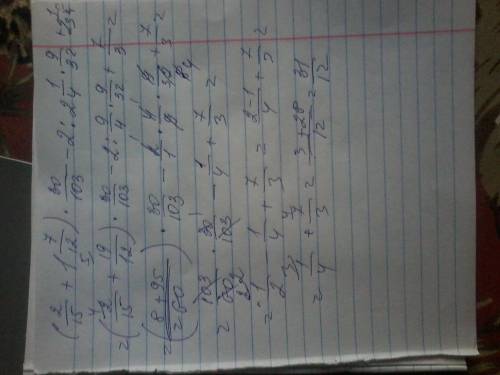 (2/15 + 1 7/12) · 30/103 - 2 : 2 1/4 · 9/32 + 2 1/3 =
= (2/15 + 19/12) · 30/103 - 2 : 9/4 · 9/32 + 7/3 =
= (8+95/60) · 30/103 - 2/1 · 4/9 · 9/32 + 7/3 =
= 103/60 · 30/103 - 1/4 + 7/3 =
= 1/2 - 1/4 + 7/3 = 2-1/4 + 7/3 =
= 1/4 + 7/3 = 3+28/12 = 31/12